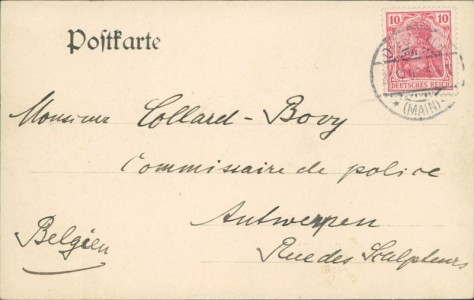 Postkarte
10 10
DEUTSCHES REICH
(MAIN)
Monsieur Collard-Bovy
Commissaire de police
Antwerpen
Belgien
Rue des Sculpteurs